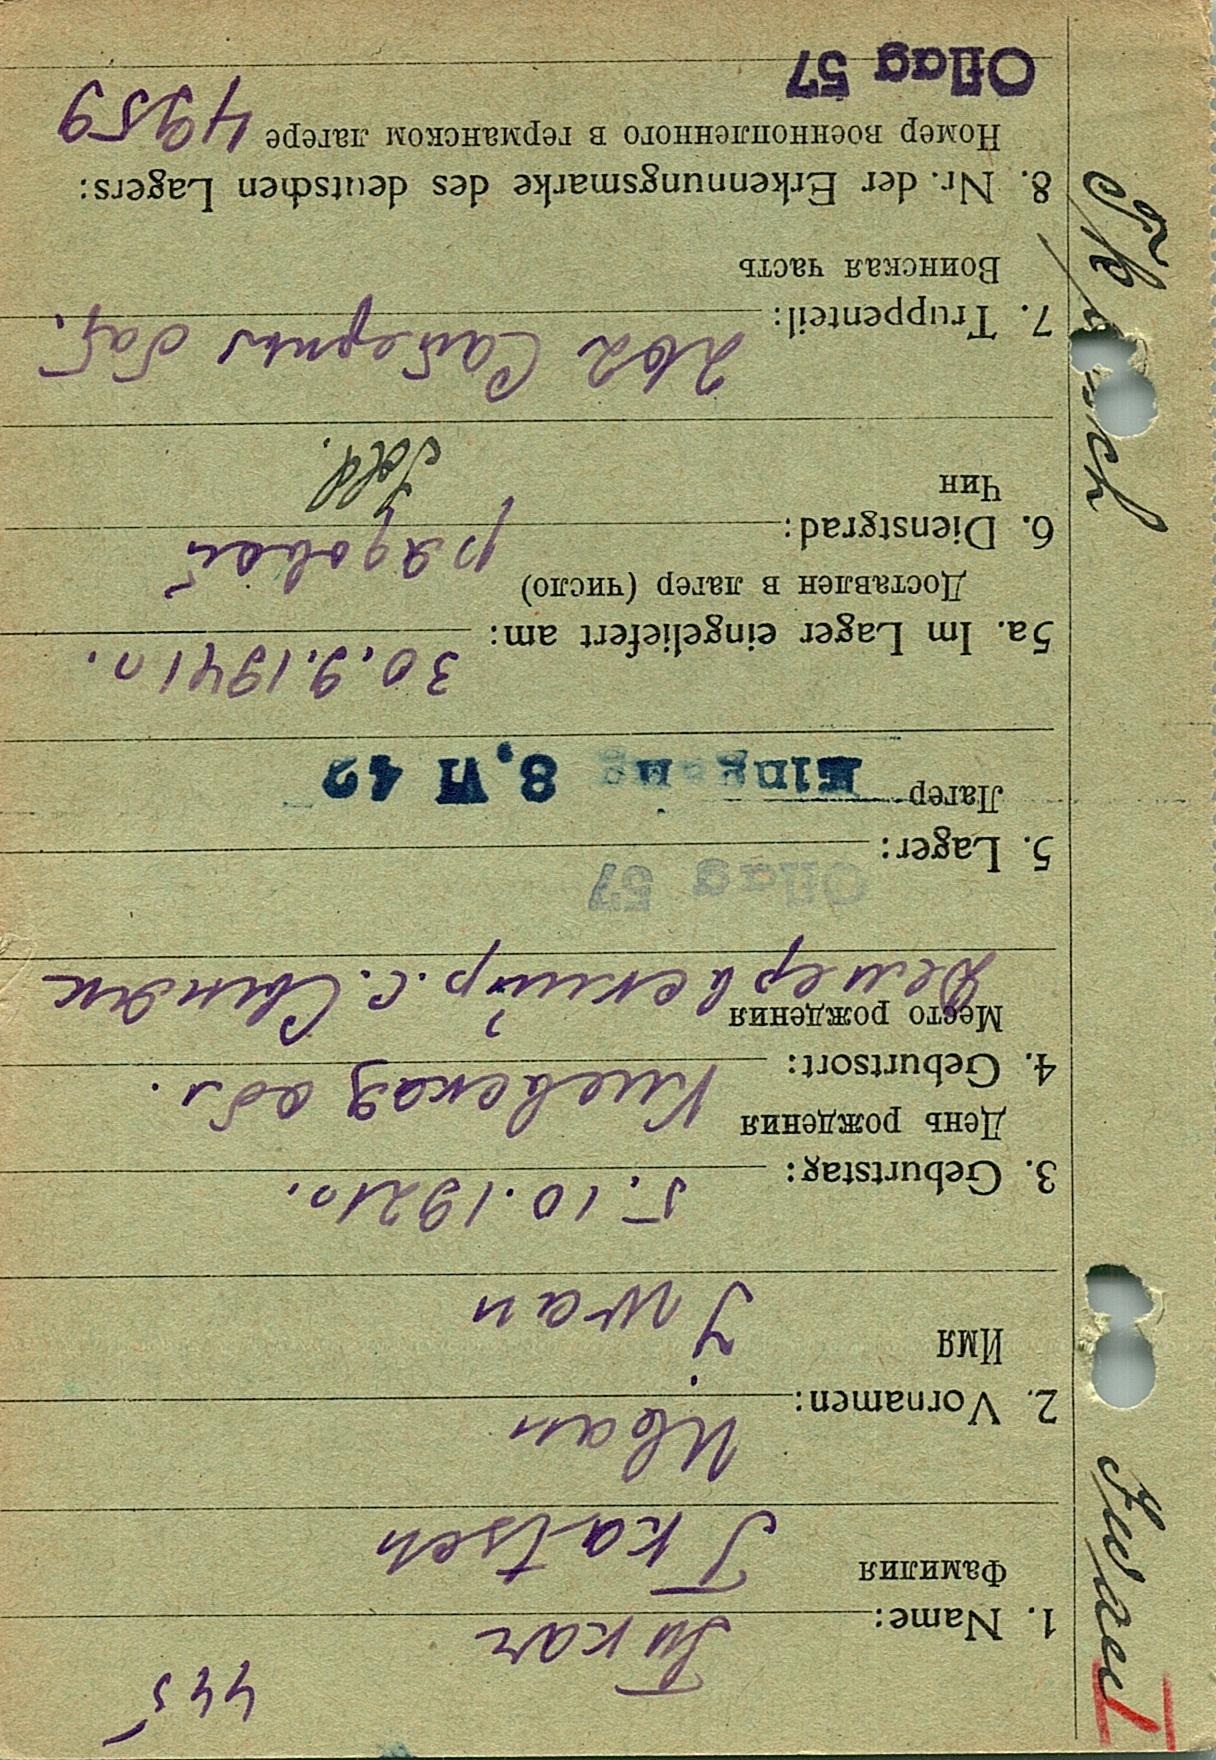 445
1. Name: Ткач
Фамилия Tkatsch
2. Vornamen: Иван
Имя Iwan
3. Geburtstag: 5.10.1921 г.
День рождения
4. Geburtsort: Киевская обл.
Место рождения
р. с.
Oflag 57
5. Lager:
Лагер Eingang 8. VI 42
30.9.1941 г.
5a. Im Lager eingeliefert am:
Доставлен в лагер (число)
6. Dienstgrad: рядовой
Чин Sold.
7. Truppenteil: 202 Саперный бат.
Воинская часть
8. Nr. der Erkennungsmarke des deutschen Lagers:
Номер военнопленного в германском лагере 4959
Oflag 57
I Iwan Tkatsch